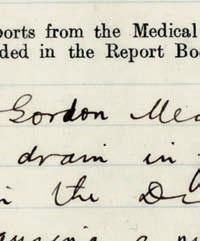 ports from the Medical
ded in the Report Boo
Gordon Med
drain in
in the D